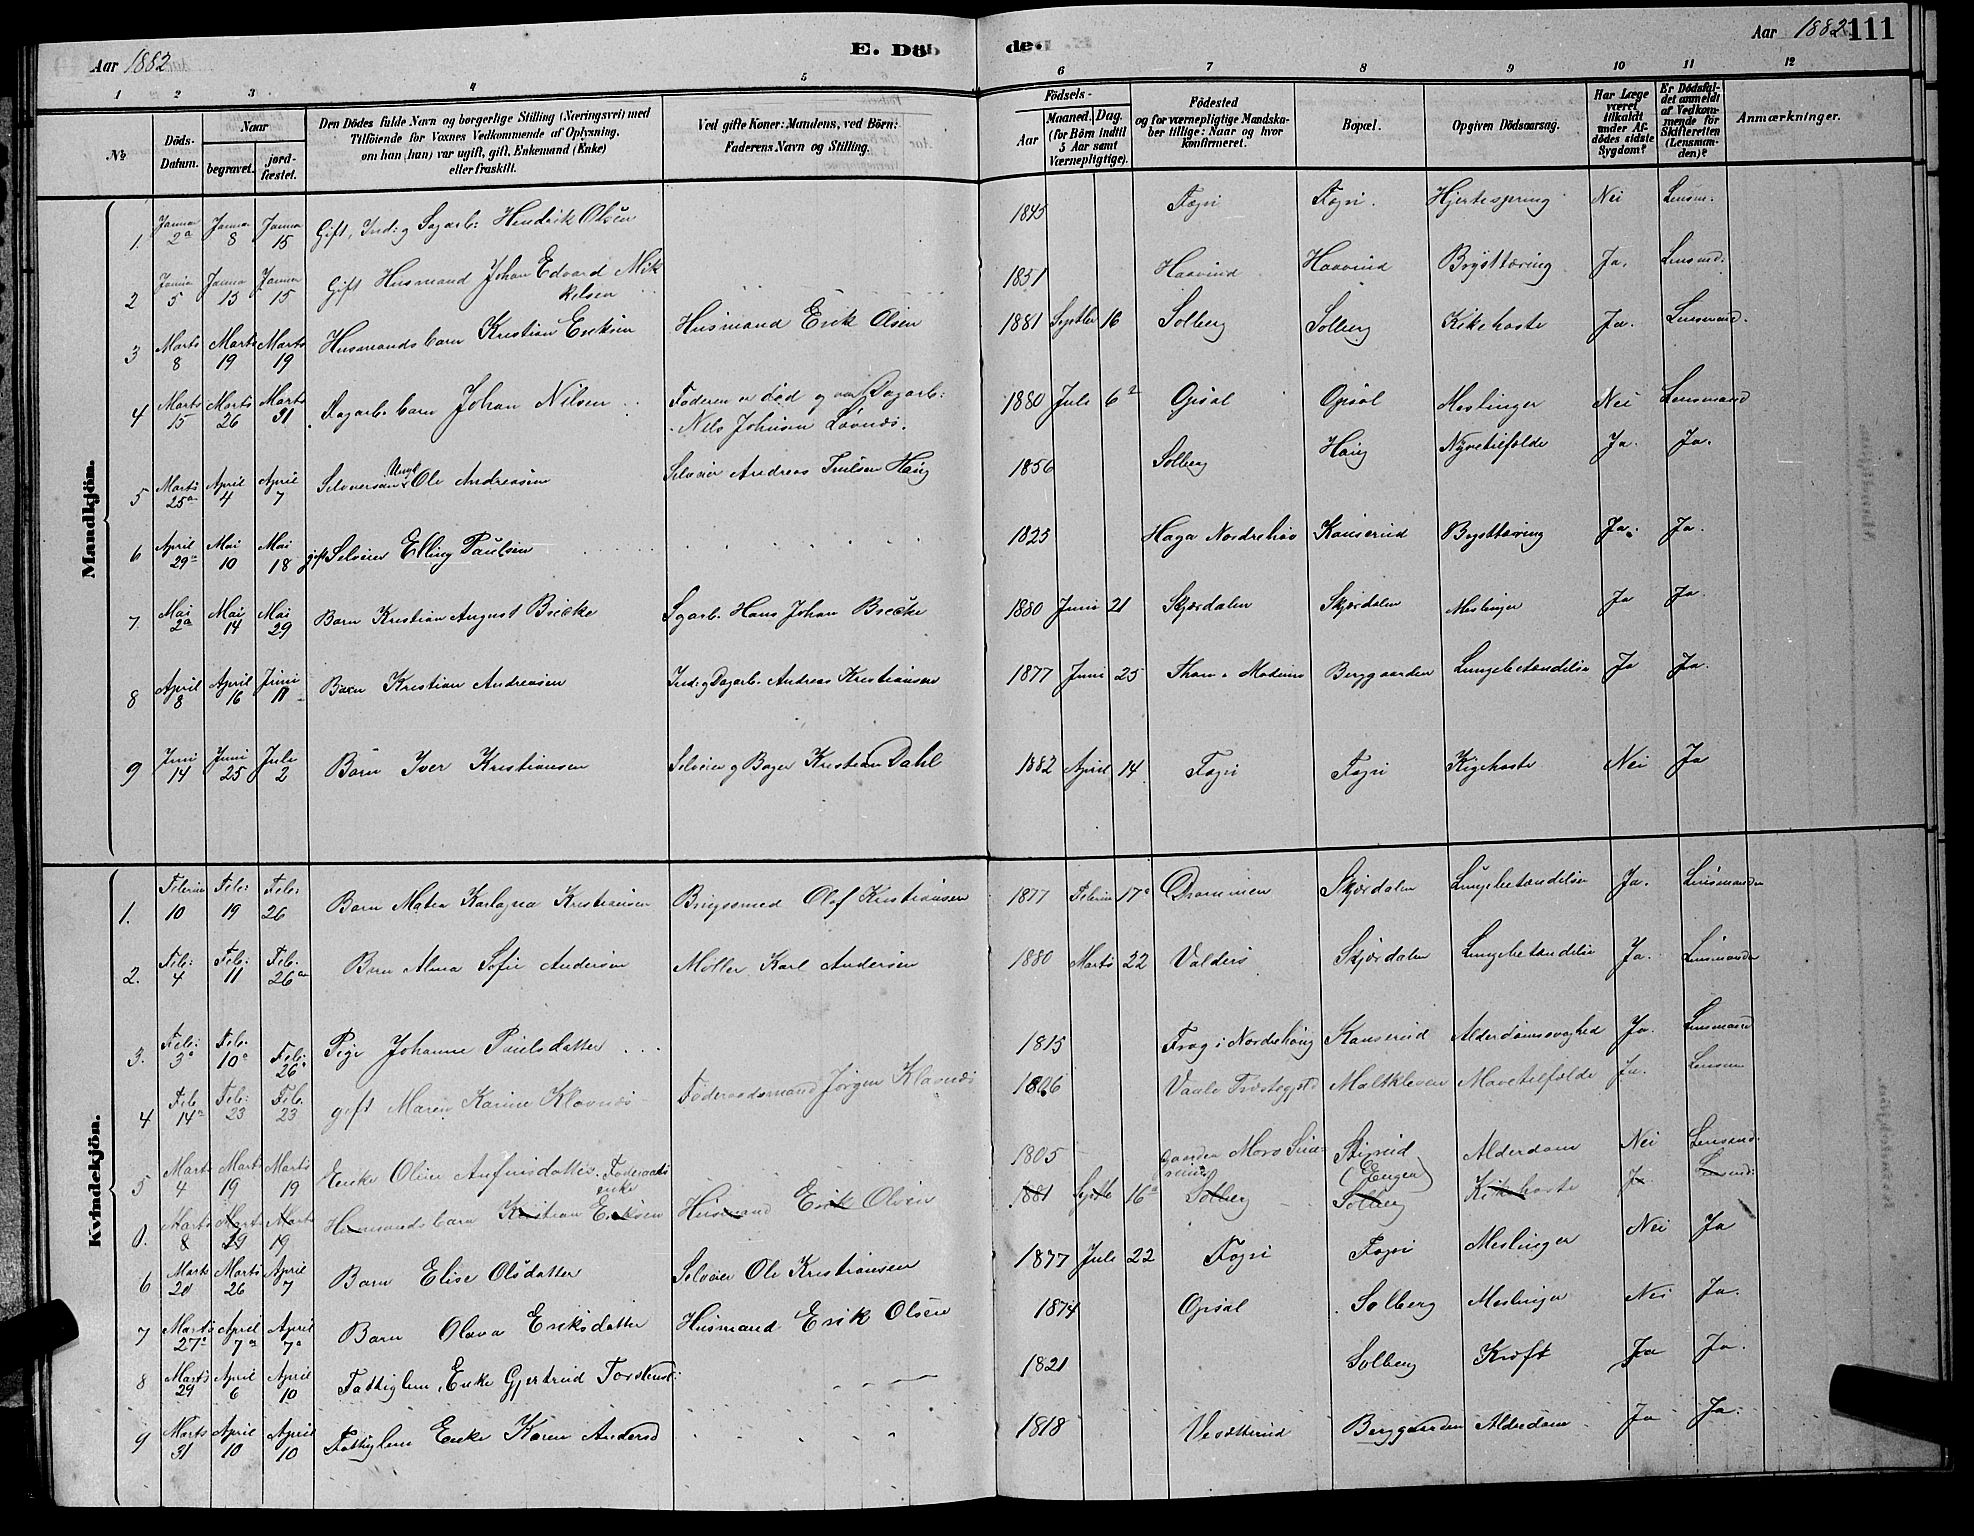 Aar 1882 E. Döb de. Aar 1882 111
1 2 3 4 5 6 7 8 9 10 11 12
No Döds-Datum. Naar begravet. jord-fæstet. Den Dödes fulde Navn og borgerlige Stilling (Næringsvei) med Tilföiende for Voxnes Vedkommende af Oplysning, om han (hun) var ugift, gift, Enkemand (Enke) eller fraskilt. Ved gifte Koner: Mandens, ved Börn: Faderens Navn og Stilling. Födsels- Aar Maaned. Dag. (for Börn indtil 5 Aar samt Værnepligtige). Födested og for værnepligtige Mandskaber tillige: Naar og hvor konfirmeret. Bopæl. Opgiven Dödsaarsag. Har Læge været tilkaldt under Afdödes sidste Sygdom? Er Dödsfaldet anmeldt af Vedkommende for Skifteretten (Lensmanden)? Anmærkninger.
Mandkjön.
1. Janua 2a Janua 8 Janua 15 Gift, Ind. og Sagarb: Hendrik Olsen 1845 Fagri Fagri. Hjertespring Nei Lensm.
2 Janua 5 Janua 13 Janua 15 Gift Husmand Johan Edvard Mikkelsen 1851 Haavind Haavind Brysttæring Ja. Lensmd:
3 Marts 8 Marts 19 Marts 19 Husmandsbarn Kristian Eriksen Husmand Erik Olsen 1881 Septbr 16 Solberg Solberg Kikehoste Ja. Lensmand.
4 Marts 15 Marts 26 Marts 31 Dagarb. barn Johan Nilsen Faderen er död og var Dagarb: Nils Johnsen Lövnæs. 1880 Juli 6 Opsal Opsal Meslinger Nei Lensmand
5 Marts 25a April 4 April 7 Selveiersøn Ungk Ole Andreasen Selveier Andreas Haug 1856 Solberg Haug Nyretilfælde Ja. Ja.
6 April 29 Mai 10 Mai 18 gift Selveier Elling Paulsen 1825 Haga Nordrehov Kanserud Brysttæring Ja. Ja.
7. Mai 2a Mai 14 Mai 29 Barn Kristian August Brecke Sgarb. Hans Johan Brecke 1880 Juni 21 Skjærdalen Skjærdalen Meslinger Ja Ja.
8 April 8 April 16 Juni 11 Barn Kristian Andreasen Ind. og Dagarb. Andreas Kristiansen 1877 Juni 25 Modum Berggaarden Lungebetændelse Ja Ja.
9 Juni 14 Juni 25 Juli 2 Barn Iver Kristiansen Selveier og Bager Kristian Dahl 1882 April 14 Fagri Fagri Kigehoste Nei Ja
Kvindekjön.
1. Februar 10 Feb: 19 Feb: 26 Barn Matea Karlagna Kristiansen Brugssmed Olof Kristiansen 1877 Februar 17 Drammen Skjærdalen Lungebetændelse Ja. Lensmanden
2. Feb: 4 Feb: 11 Feb. 26 Barn Alma Sofie Andersen Møller Karl Andersen 1880 Marts 22 Valders Skjærdalen Lungebetændelse Ja. Lensmanden
3. Feb: 3 Feb. 10 Feb: 26 Pige Johanne Paulsdatter 1815 Frog i Nordrehaug Kanserud Alderdomssvaghed Ja. Lensmand
4 Feb 14 Feb: 23 Feb. 23 gift Maren Karine Klovnæs Föderaadsmand Jørgen Klovnæs 1806 Maltkleven Mavetilfælde Ja. Lensm
5 Marts 4 Marts 19 Marts 19 Enke Oline Anfinsdatter. Föderaads enke 1805 Gaarden Mors Stixrud (Enger) Alderdom Nei Lensmd.
0. Marts 8 Marts 19 Marts 19 Husmandsbarn Kristian Eriksen Husmand Erik Olsen 1881 Septb 16 Solberg Solberg Kikehoste Ja. Lensmd:
6 Marts 20 Marts 26 April 7 Barn Elise Olsdatter Selveier Ole Kristiansen 1877 Juli 22 Fagri Fagri Meslinger Nei Ja
7 Marts 27 April 7 April 7 Barn Olava Eriksdatter Husmand Erik Olsen 1874 Opsal Solberg Meslinger Nei Ja.
8 Marts 29 April 6 April 10 Fattiglem, Enke Gjertrud Torstensd: 1821 Solberg Kræft Ja Ja.
9 Marts 31 April 10 April 10 Fattiglem Enke Karen Andersd 1818 Vesætterud Berggaarden Alderdom Ja Ja.